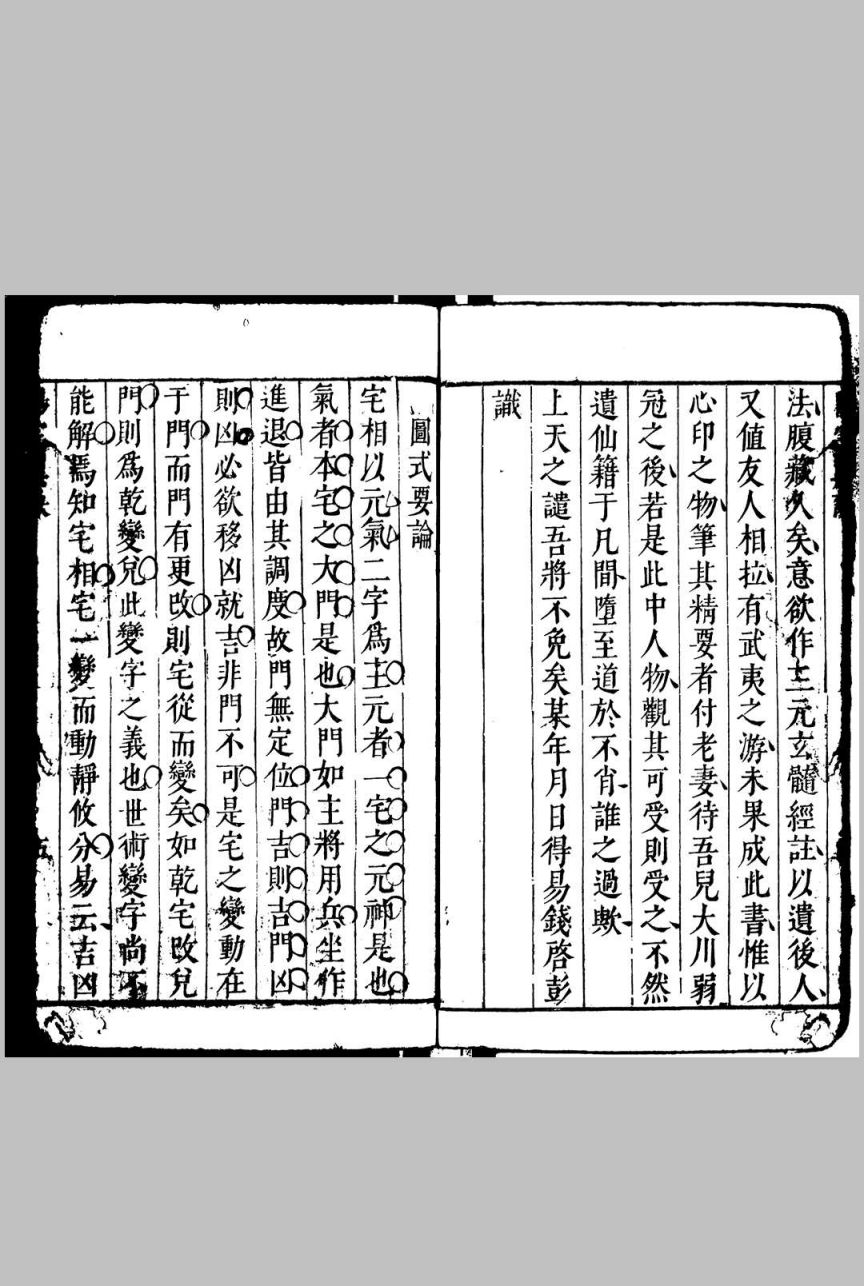 法腹藏久矣意欲作三元玄髓經註以遺後人
又值友人相拉有武夷之游未果成此書惟以
心印之物筆其精要者付老妻待吾兒大川弱
冠之後若是此中人物觀其可受則受之不然
遺仙籍于凡間墮至道於不肖誰之過歟
上天之譴吾將不免矣某年月日得易錢啓彭
識
圖式要論
宅相以元氣二字爲主元者一宅之元神是也
氣者本宅之大門是也大門如主將用兵坐作
進退皆由其調度故門無定位門吉則吉門凶
則凶必欲移凶就吉非門不可是宅之變動在
于門而門有更改則宅從而變矣如乾宅改兌
門則爲乾變兌此變字之義也世術變字尚不
能解焉知宅相宅一變而動靜攸分易云吉凶